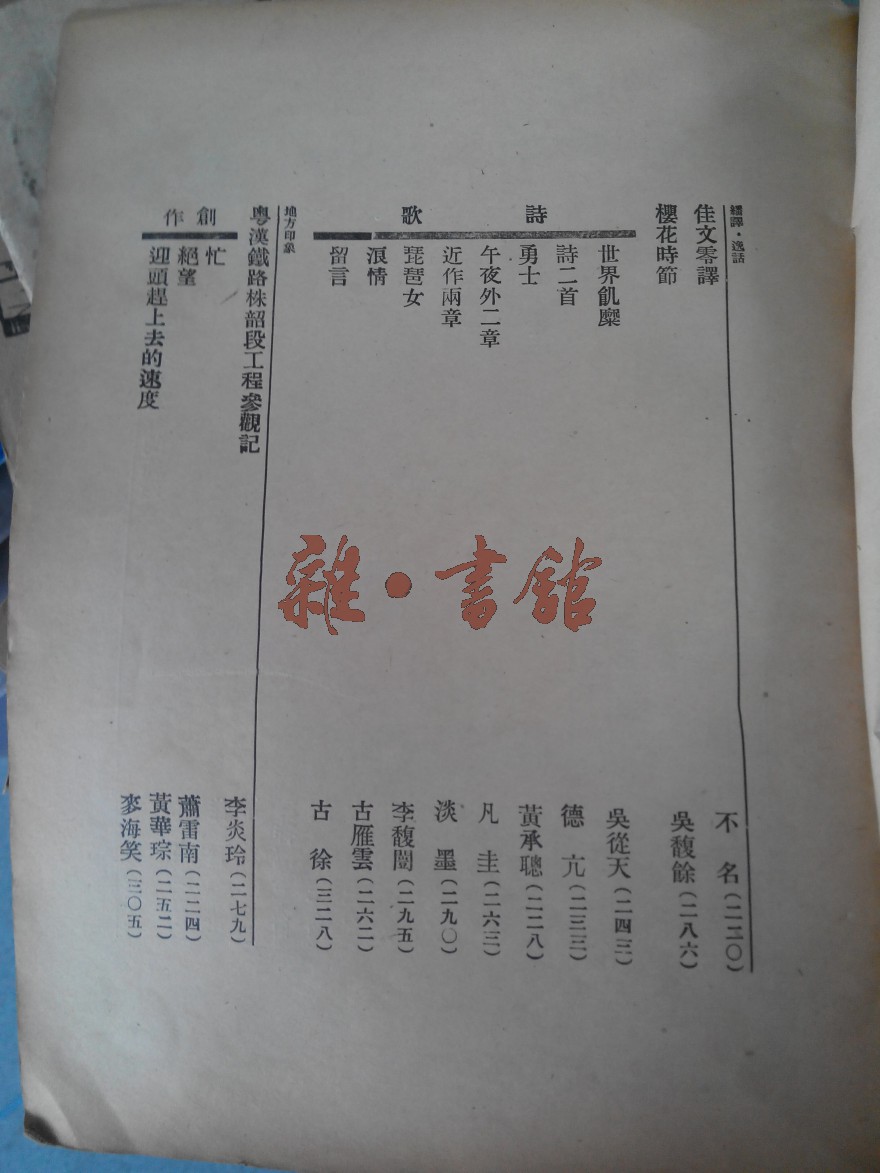 繙譯·逸話
佳文零譯 不名(二二〇)
櫻花時節 吳馥餘(二八六)
詩歌
世界飢糜 吳從天(二四三)
詩二首 德亢(二三三)
勇士 黃承聰(二二八)
午夜外二章 凡圭(二六三)
近作兩章 淡墨(二九〇)
琵琶女 李馥闓(二九五)
浪情 古雁雲(二六二)
留言 古徐(三二八)
地方印象
粵漢鐵路株韶段工程參觀記 李炎玲(二七九)
創作
忙 蕭雷南(二二四)
絕望 黃華琮(二五二)
迎頭趕上去的速度 麥海笑(三〇五)
雜·書館